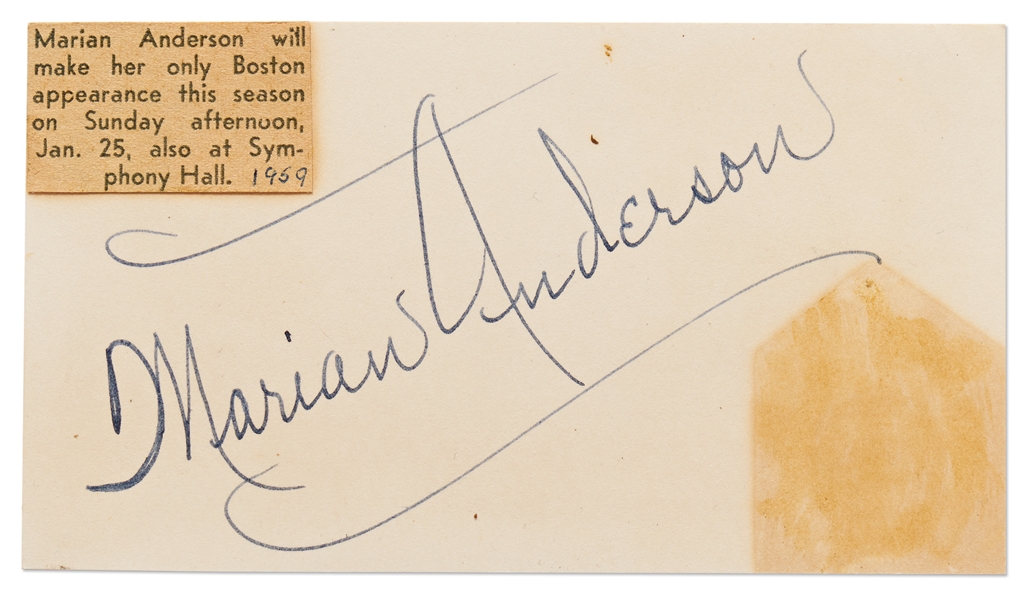 Marian Anderson will
make her only Boston
appearance this season
on Sunday afternoon,
Jan. 25, also at Sym-
phony Hall. 1959
Marian Anderson